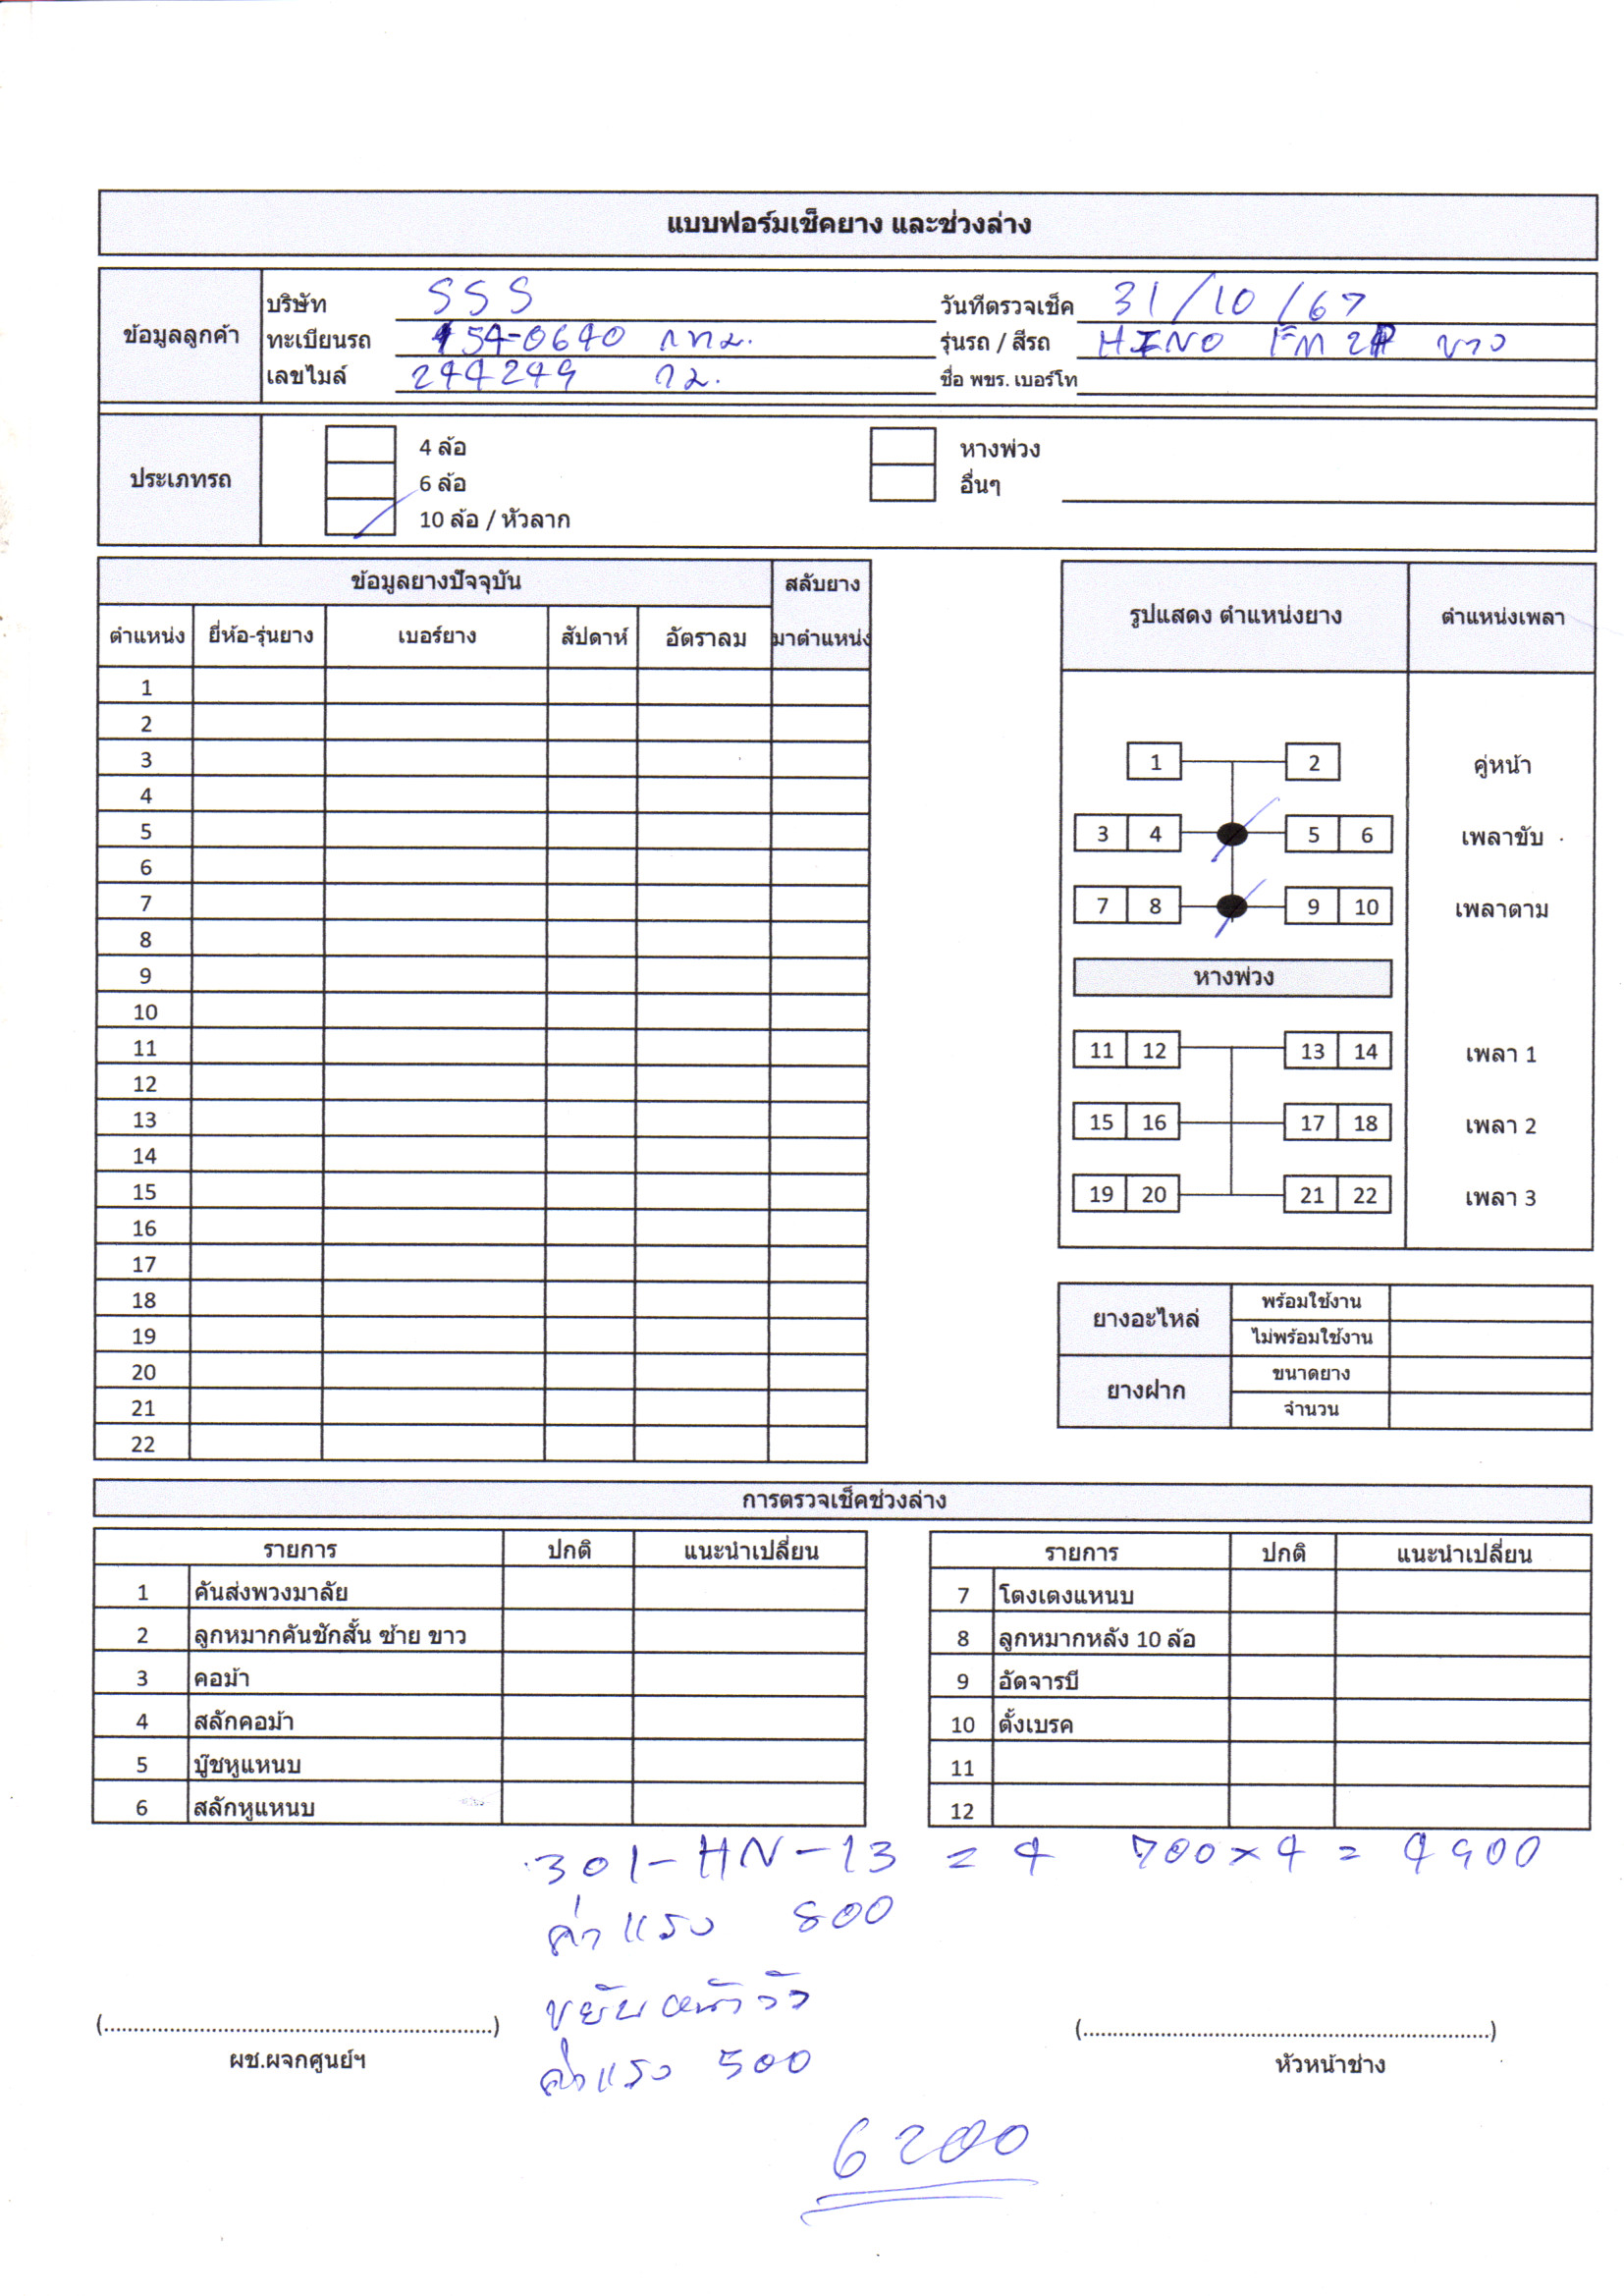 แบบฟอร์มเช็คยาง และช่วงล่าง
ข้อมูลลูกค้า
บริษัท SSS วันที่ตรวจเช็ค 31/10/67
ทะเบียนรถ 54-0640 กทม. รุ่นรถ / สีรถ HINO FM2P ขาว
เลขไมล์ 244249 กม. ชื่อ พขร. เบอร์โท
ประเภทรถ
4 ล้อ หางพ่วง
6 ล้อ อื่นๆ
10 ล้อ / หัวลาก
ข้อมูลยางปัจจุบัน สลับยาง
ตำแหน่ง ยี่ห้อ-รุ่นยาง เบอร์ยาง สัปดาห์ อัตราลม มาตำแหน่ง
1
2
3
4
5
6
7
8
9
10
11
12
13
14
15
16
17
18
19
20
21
22
รูปแสดง ตำแหน่งยาง ตำแหน่งเพลา
1 2 คู่หน้า
3 4 5 6 เพลาขับ
7 8 9 10 เพลาตาม
หางพ่วง
11 12 13 14 เพลา 1
15 16 17 18 เพลา 2
19 20 21 22 เพลา 3
ยางอะไหล่ พร้อมใช้งาน
ไม่พร้อมใช้งาน
ยางฝาก ขนาดยาง
จำนวน
การตรวจเช็คช่วงล่าง
รายการ ปกติ แนะนำเปลี่ยน
1 คันส่งพวงมาลัย
2 ลูกหมากคันชักสั้น ซ้าย ขาว
3 คอม้า
4 สลักคอม้า
5 บู๊ชหูแหนบ
6 สลักหูแหนบ
รายการ ปกติ แนะนำเปลี่ยน
7 โตงเตงแหนบ
8 ลูกหมากหลัง 10 ล้อ
9 อัดจารบี
10 ตั้งเบรค
11
12
301-HN-13 = 4 700x4 = 4900
ค่าแรง 800
ขยับหน้าวัว
ค่าแรง 500
(..........) (..........)
ผช.ผจกศูนย์ฯ หัวหน้าช่าง
6200